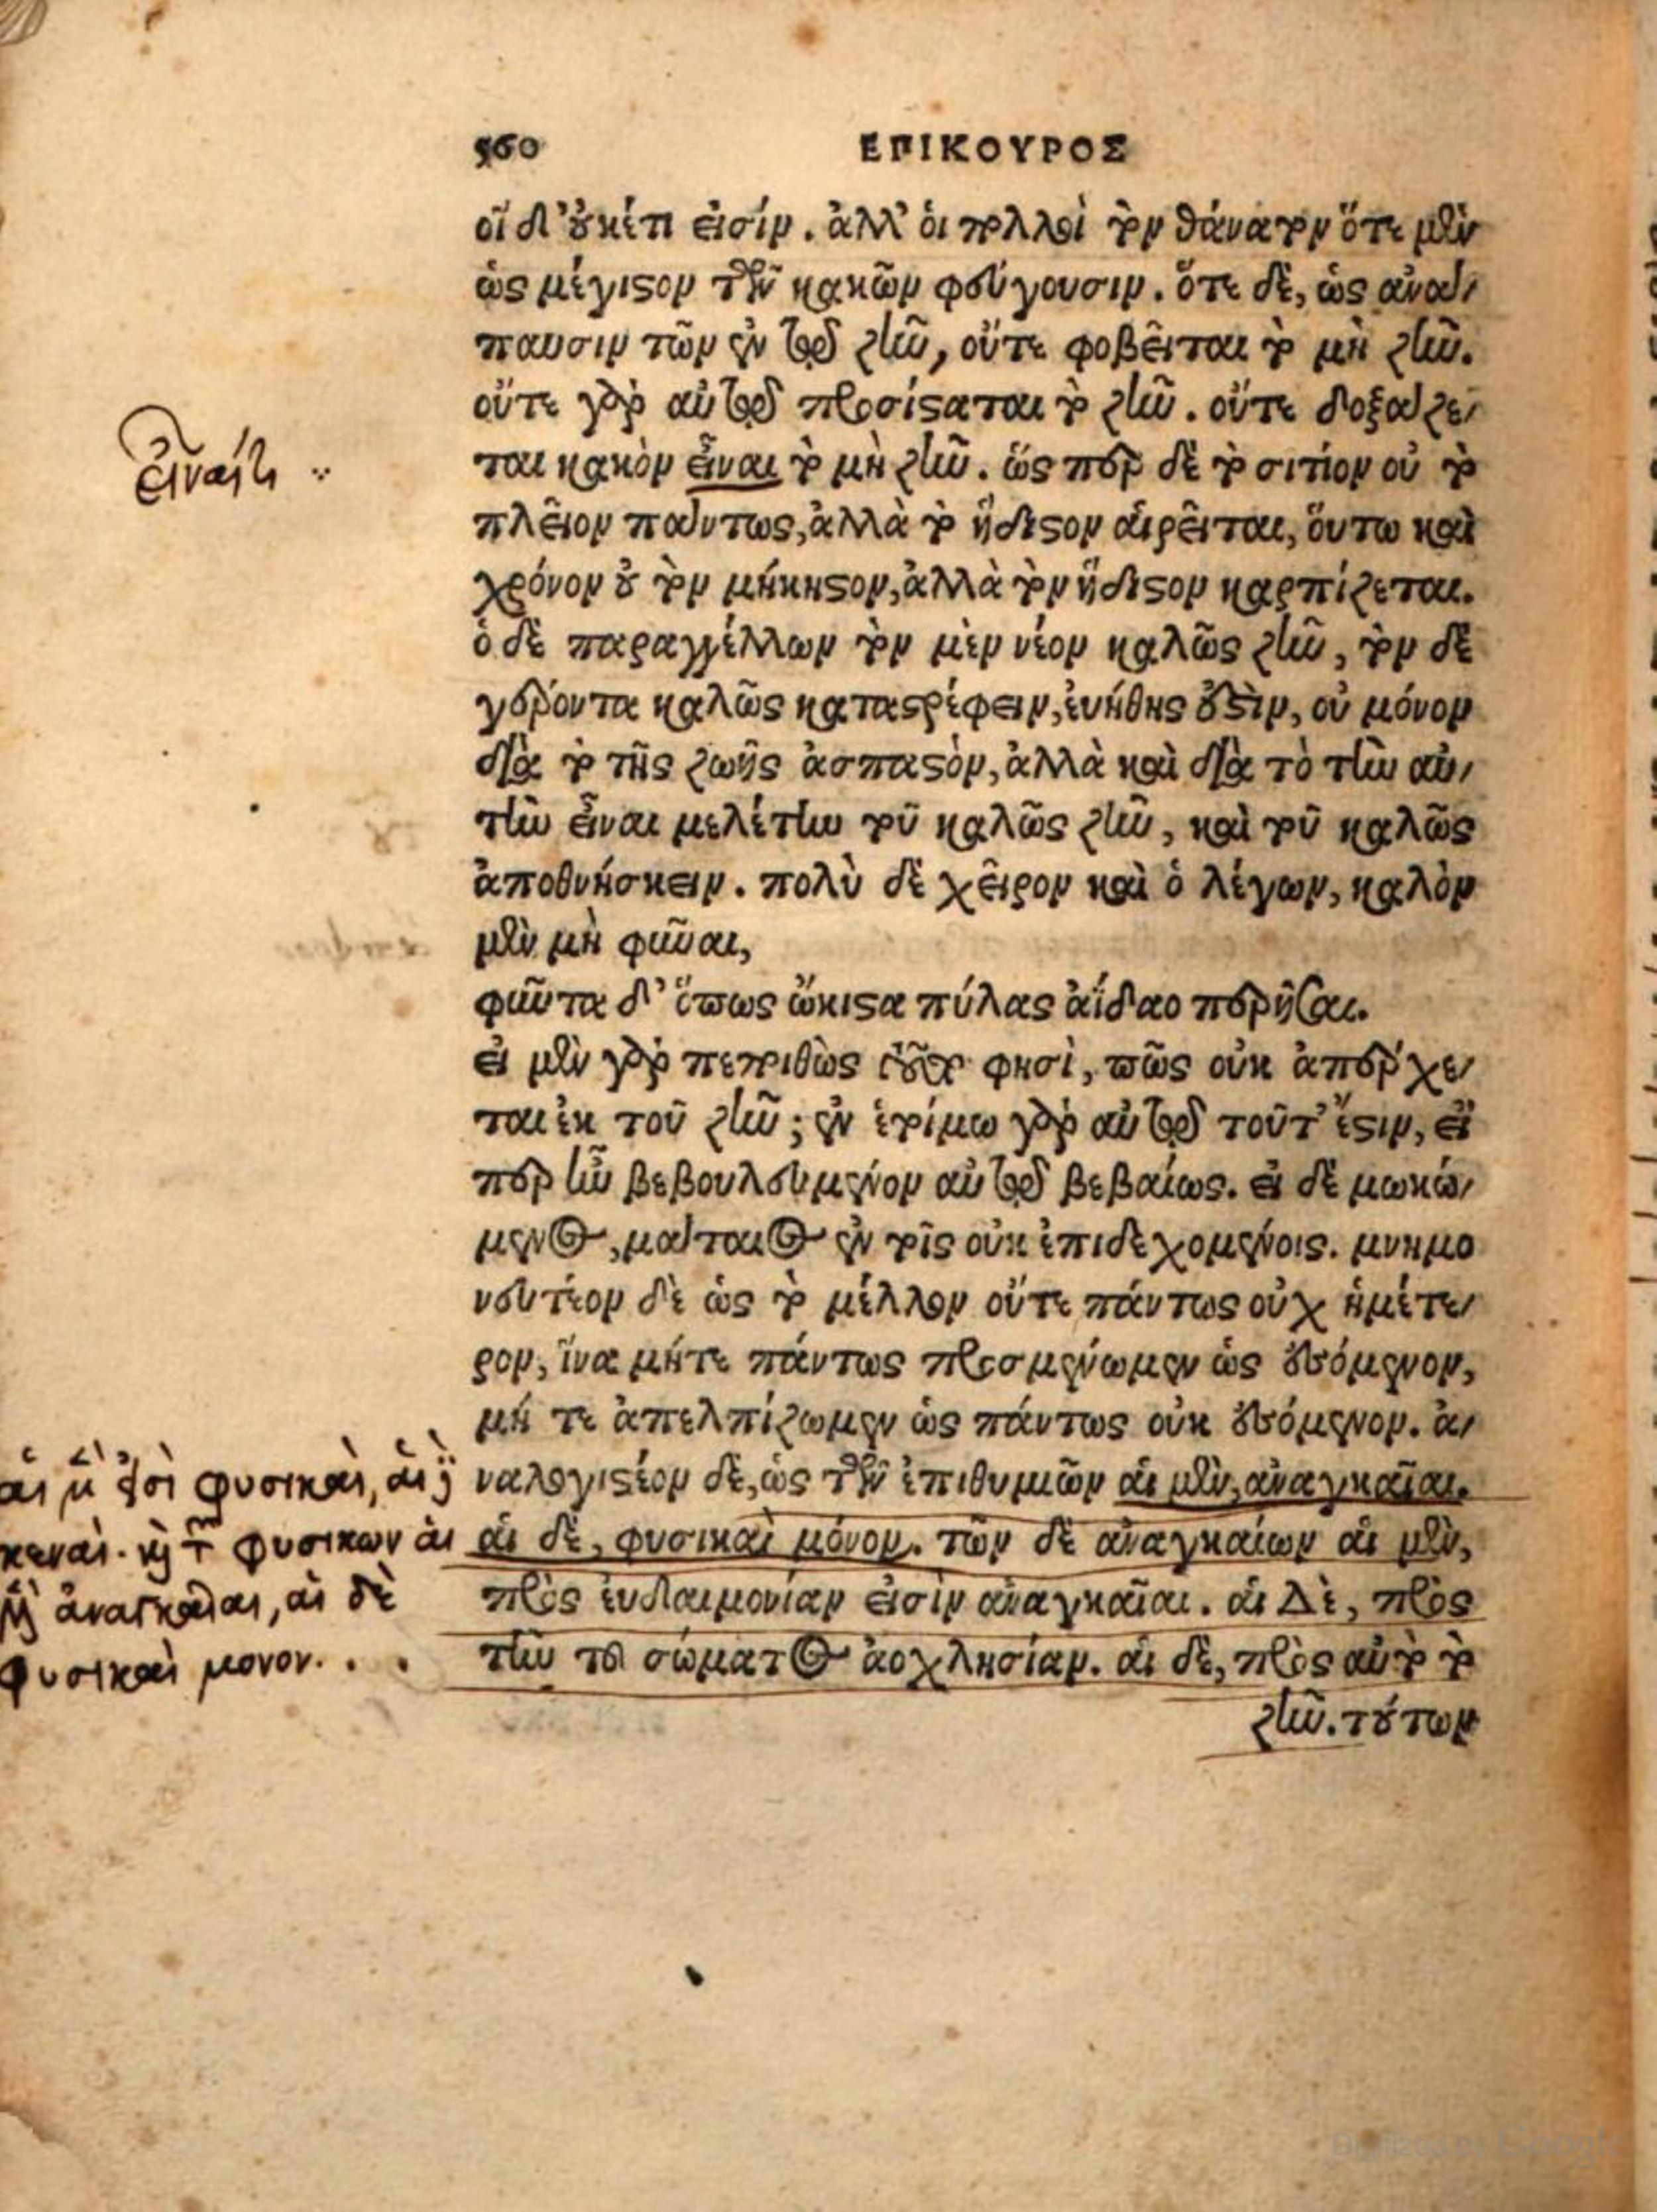 560 ΕΠΙΚΟΥΡΟΣ
οἵ δ' οὐκέτι εἰσίν. ἀλλ' οἱ πολλοὶ τὸν θάνατον ὅτε μὲν
ὡς μέγιστον τῶν κακῶν φεύγουσιν. ὅτε δὲ, ὡς ἀνά-
παυσιν τῶν ἐν τῷ ζῆν, οὔτε φοβεῖται τὸ μὴ ζῆν.
οὔτε γὰρ αὐτῷ προσίσταται τὸ ζῆν. οὔτε δοξάζε-
εἶναί τι
ται κακὸν εἶναι τὸ μὴ ζῆν. ὥς περ δὲ τὸ σιτίον οὐ τὸ
πλεῖον πάντως, ἀλλὰ τὸ ἥδιστον αἱρεῖται, οὕτω καὶ
χρόνον οὐ τὸν μήκιστον, ἀλλὰ τὸν ἥδιστον καρπίζεται.
ὁ δὲ παραγγέλλων τὸν μὲν νέον καλῶς ζῆν, τὸν δὲ
γέροντα καλῶς καταστρέφειν, εὐήθης ἐστὶν, οὐ μόνον
διὰ τὸ τῆς ζωῆς ἀσπαστὸν, ἀλλὰ καὶ διὰ τὸ τὴν αὐ-
τὴν εἶναι μελέτην τοῦ καλῶς ζῆν, καὶ τοῦ καλῶς
ἀποθνήσκειν. πολὺ δὲ χεῖρον καὶ ὁ λέγων, καλὸν
μὲν μὴ φῦναι,
φῦντα δ' ὅπως ὤκιστα πύλας ἀΐδαο περῆσαι.
εἰ μὲν γὰρ πεποιθὼς τοῦτο φησὶ, πῶς οὐκ ἀπέρχε-
ται ἐκ τοῦ ζῆν; ἐν ἑτοίμω γὰρ αὐτῷ τοῦτ' ἔστιν, εἴ
περ ἦν βεβουλευμένον αὐτῷ βεβαίως. εἰ δὲ μωκώ-
μενος, μάταιος ἐν τοῖς οὐκ ἐπιδεχομένοις. μνημο
νευτέον δὲ ὡς τὸ μέλλον οὔτε πάντως οὐχ ἡμέτε-
ρον, ἵνα μήτε πάντως προσμένωμεν ὡς ἐσόμενον,
μή τε ἀπελπίζωμεν ὡς πάντως οὐκ ἐσόμενον. ἀ-
ναλογιστέον δὲ, ὡς τῶν ἐπιθυμιῶν αἱ μὲν, ἀναγκαῖαι.
αἱ δὲ, φυσικαὶ μόνον. τῶν δὲ ἀναγκαίων αἱ μὲν,
πρὸς εὐδαιμονίαν εἰσὶν ἀναγκαῖαι. αἱ Δὲ, πρὸς
τὴν τοῦ σώματος ἀοχλησίαν. αἱ δὲ, πρὸς αὐτὸ τὸ
ζῆν. τούτων
αἱ μὲν εἰσὶ φυσικαὶ, αἱ δὲ
κεναὶ. καὶ τῶν φυσικων αἱ
μὲν ἀναγκαῖαι, αἱ δὲ
φυσικαὶ μονον. . .